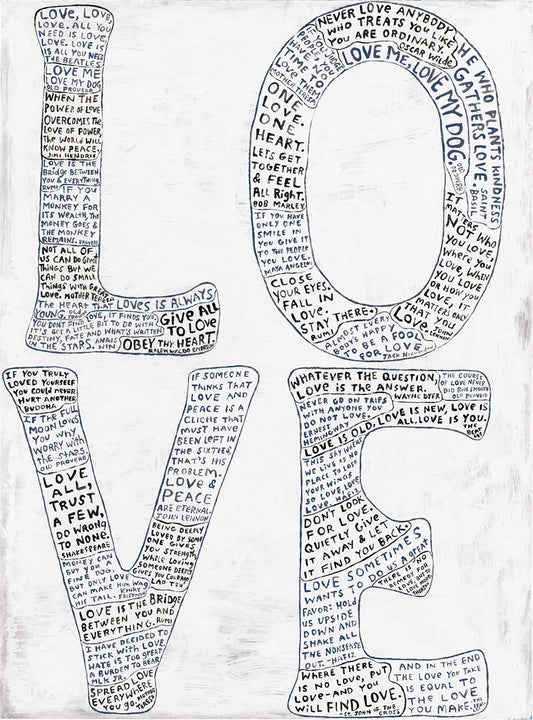 LOVE, LOVE,
LOVE. ALL YOU
NEED IS LOVE.
LOVE. LOVE IS
IS ALL YOU NEED
THE BEATLES
LOVE ME
LOVE MY DOG
OLD PROVERB
WHEN THE
POWER OF LOVE
OVERCOMES THE
LOVE OF POWER,
THE WORLD WILL
KNOW PEACE.
JIMI HENDRIX
LOVE IS THE
BRIDGE BETWEEN
YOU & EVERYTHING.
RUMI
IF YOU
MARRY A
MONKEY FOR
ITS WEALTH, THE
MONEY GOES &
THE MONKEY
REMAINS. PROVERB
NOT ALL OF
US CAN DO GREAT
THINGS BUT WE
CAN DO SMALL
THINGS WITH GREAT
LOVE. MOTHER TERESA
THE HEART THAT LOVES IS ALWAYS
YOUNG.
YOU DON'T FIND LOVE, IT FINDS YOU.
IT'S GOT A LITTLE BIT TO DO WITH
DESTINY, FATE AND WHAT'S WRITTEN
IN THE STARS. ANAIS NIN
GIVE ALL
TO LOVE
OBEY THY HEART.
RALPH WALDO EMERSON
NEVER LOVE ANYBODY
WHO TREATS YOU LIKE
YOU ARE ORDINARY.
OSCAR WILDE
IF YOU JUDGE
PEOPLE YOU
HAVE NO
TIME TO
LOVE THEM
MOTHER TERESA
LOVE ME, LOVE MY DOG.
OLD PROVERB
HE WHO PLANTS KINDNESS
GATHERS LOVE.
SAINT
BASIL
ONE
LOVE.
ONE
HEART.
LETS GET
TOGETHER
& FEEL
ALL RIGHT.
BOB MARLEY
IF YOU HAVE
ONLY ONE
SMILE IN
YOU GIVE IT
TO THE PEOPLE
YOU LOVE.
MAYA ANGELOU
CLOSE
YOUR EYES.
FALL IN
LOVE.
STAY THERE.
RUMI
ALMOST EVERY
BODY'S HAPPY
TO BE A FOOL
FOR LOVE.
JACK NICHOLSON
IT
MATTERS
NOT WHO
YOU LOVE,
WHERE YOU
LOVE, WHEN
YOU LOVE
OR HOW YOU
LOVE, IT
MATTERS ONLY
THAT YOU
LOVE.
JOHN
LENNON
IF YOU TRULY
LOVED YOURSELF
YOU COULD NEVER
HURT ANOTHER.
BUDDHA
IF THE FULL
MOON LOVES
YOU WHY
WORRY WITH
THE STARS.
OLD PROVERB
LOVE
ALL,
TRUST
A FEW,
DO WRONG
TO NONE.
SHAKESPEARE
MONEY CAN
BUY YOU A
FINE DOG,
BUT ONLY LOVE
CAN MAKE HIM WAG
HIS TAIL.
KINKY
FRIEDMAN
LOVE IS THE BRIDGE
BETWEEN YOU AND
EVERYTHING. RUMI
I HAVE DECIDED TO
STICK WITH LOVE.
HATE IS TOO GREAT
A BURDEN TO BEAR.
MLK JR.
SPREAD LOVE
EVERYWHERE
YOU GO. MOTHER
TERESA
IF SOMEONE
THINKS THAT
LOVE AND
PEACE IS A
CLICHE THAT
MUST HAVE
BEEN LEFT IN
THE SIXTIES,
THAT'S HIS
PROBLEM.
LOVE &
PEACE
ARE ETERNAL.
JOHN LENNON
BEING DEEPLY
LOVED BY SOME
ONE GIVES
YOU STRENGTH
WHILE LOVING
SOMEONE DEEPLY
GIVES YOU COURAGE
LAO TZU
WHATEVER THE QUESTION,
LOVE IS THE ANSWER.
WAYNE DYER
THE COURSE
OF LOVE NEVER
DID RUN SMOOTH
OLD PROVERB
NEVER GO ON TRIPS
WITH ANYONE YOU
DO NOT LOVE.
ERNEST
HEMINGWAY
LOVE IS OLD, LOVE IS NEW, LOVE IS
ALL, LOVE IS YOU.
THE
BEATLES
THIS SKY WHERE
WE LIVE IS NO
PLACE TO LOSE
YOUR WINGS
SO LOVE, LOVE,
LOVE. HAFIZ
DON'T LOOK
FOR LOVE.
QUIETLY GIVE
IT AWAY & LET
IT FIND YOU BACK.
LOVE SOMETIMES
WANTS TO DO US A GREAT
FAVOR: HOLD
US UPSIDE
DOWN AND
SHAKE ALL
THE NONSENSE
OUT. -HAFIZ
THERE IS NO
REMEDY FOR
LOVE BUT TO
LOVE MORE
WHERE THERE
IS NO LOVE, PUT
LOVE - AND YOU
WILL FIND LOVE.
-ST. JOHN OF THE
CROSS
AND IN THE END
THE LOVE YOU TAKE
IS EQUAL TO
THE LOVE
YOU MAKE.